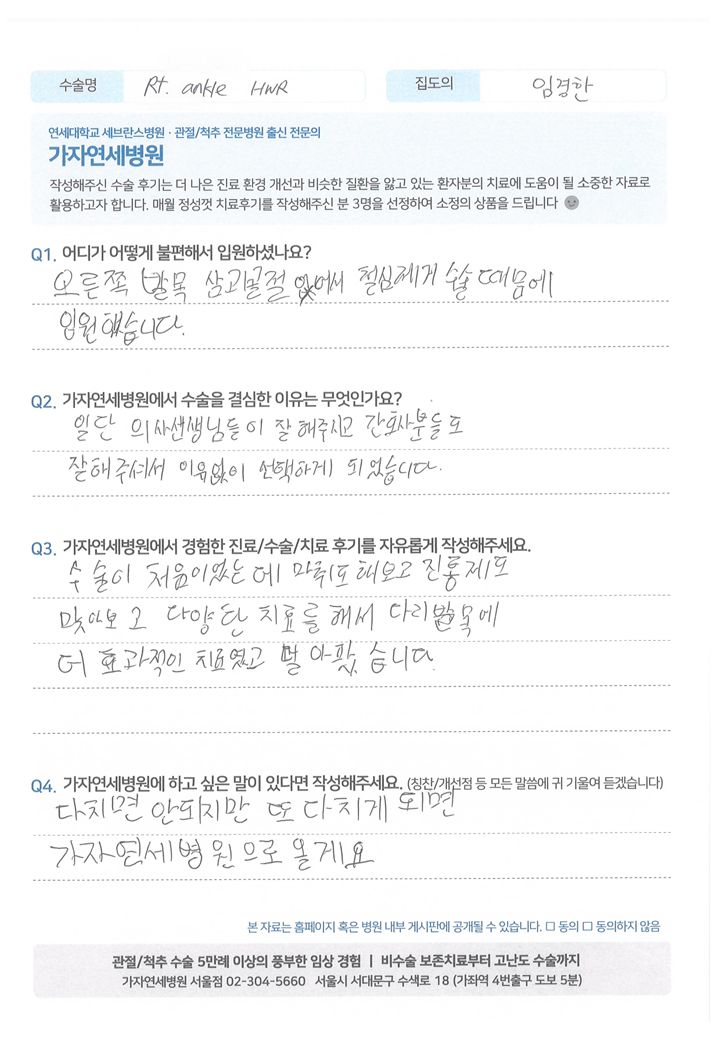 수술명 Rt. ankle HWR 집도의 임경한
연세대학교 세브란스병원 · 관절/척추 전문병원 출신 전문의
가자연세병원
작성해주신 수술 후기는 더 나은 진료 환경 개선과 비슷한 질환을 앓고 있는 환자분의 치료에 도움이 될 소중한 자료로
활용하고자 합니다. 매월 정성껏 치료후기를 작성해주신 분 3명을 선정하여 소정의 상품을 드립니다
Q1. 어디가 어떻게 불편해서 입원하셨나요?
오른쪽 발목 삼과골절 있어서 철심제게 수술 때믐에
입원했습니다.
Q2. 가자연세병원에서 수술을 결심한 이유는 무엇인가요?
일단 의사선생님들이 잘해주시고 간호사분들도
잘해주셔서 이유없이 선택하게 되었습니다.
Q3. 가자연세병원에서 경험한 진료/수술/치료 후기를 자유롭게 작성해주세요.
수술이 처음이었는데 마취도 해보고 진통제도
맞아보고 다양한 치료를 해서 다리발목에
더 효과적인 치료였고 덜 아팠습니다.
Q4. 가자연세병원에 하고 싶은 말이 있다면 작성해주세요. (칭찬/개선점 등 모든 말씀에 귀 기울여 듣겠습니다)
다치면 안되지만 또 다치게 되면
가자연세병원으로 올게요
본 자료는 홈페이지 혹은 병원 내부 게시판에 공개될 수 있습니다. □ 동의 □ 동의하지 않음
관절/척추 수술 5만례 이상의 풍부한 임상 경험 | 비수술 보존치료부터 고난도 수술까지
가자연세병원 서울점 02-304-5660 서울시 서대문구 수색로 18 (가좌역 4번출구 도보 5분)